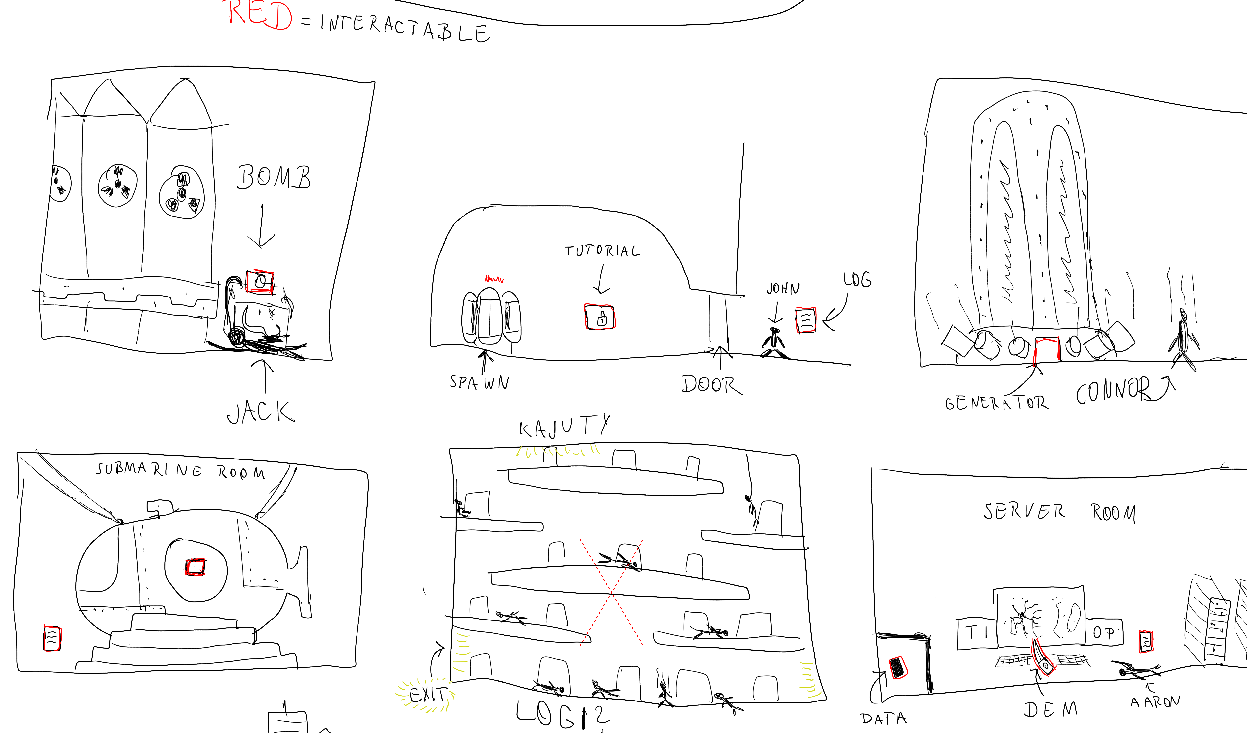 RED = INTERACTABLE
BOMB
JACK
TUTORIAL
SPAWN
DOOR
JOHN
LOG
GENERATOR
CONNOR
SUBMARINE ROOM
KAJUTY
EXIT
SERVER ROOM
OP
DATA
DEM
AARON